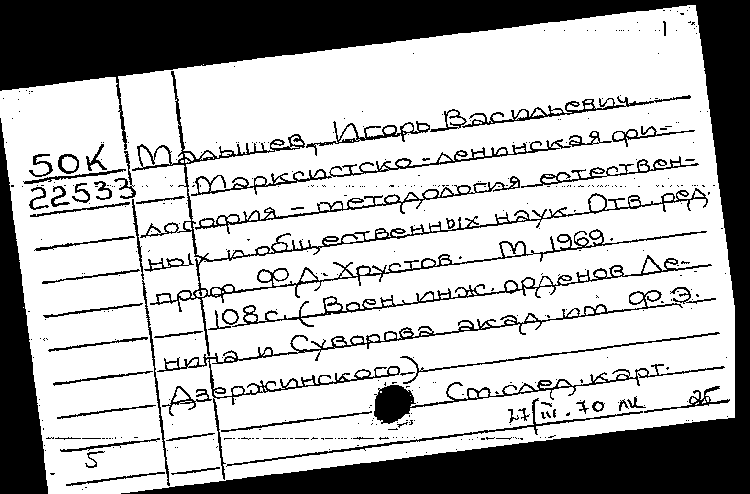 1
50К Малышев, Игорь Васильевич
22533 Марксистско-ленинская фи-
лософия - методология естествен-
ных и общественных наук. Отв. ред.
проф. Ф.Д. Хрустов. М., 1969.
108 с. (Воен. инж. орденов Ле-
нина и Суворова акад. им Ф.Э.
Дзержинского).
См. след. карт.
27/III.70 лк 25
5